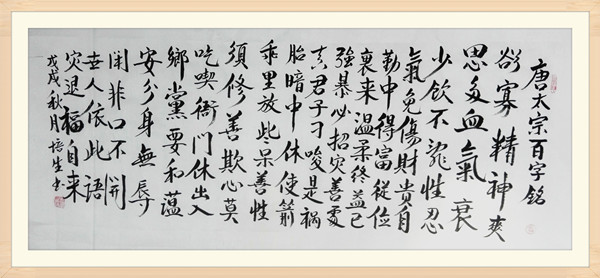 唐太宗百字铭
欲寡精神爽
思多血氣衰
少飲不乱性忍
氣免傷財貴自
勤中得富從儉
裏来温柔終益己
強暴必招灾善處
真君子刁唆是禍
胎暗中休使箭
乖里放此呆善性
須修善欺心莫
吃喫衙門休出入
鄉黨要和
安分身無辱
闲非口不開
世人依此語
灾退福自来
戊戌秋月培生书